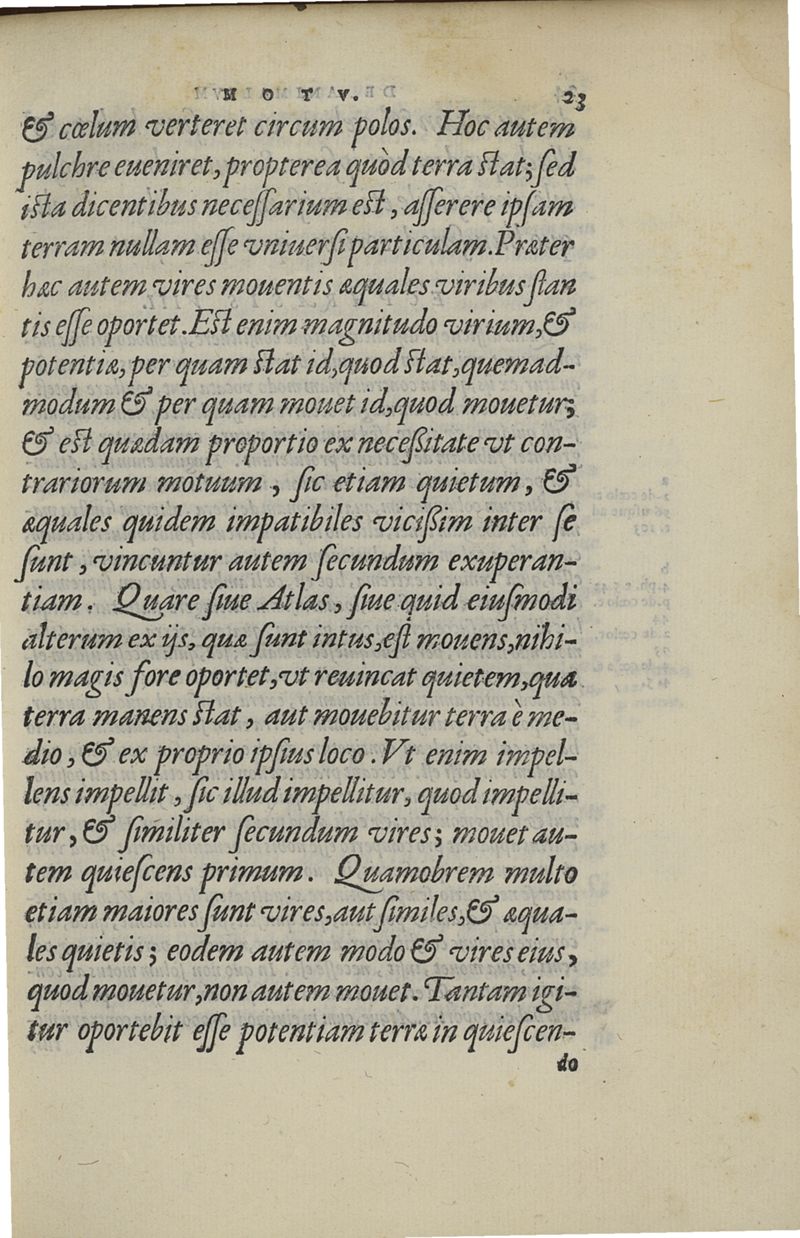 M O T V. 23
& cœlum verteret circum polos. Hoc autem
pulchre eueniret, propterea quòd terra stat; sed
ista dicentibus necessarium est, asserere ipsam
terram nullam esse vniuersi particulam. Præter
hæc autem vires mouentis æquales viribus stan
tis esse oportet. Est enim magnitudo virium, &
potentiæ, per quam stat id, quod stat, quemad-
modum & per quam mouet id, quod mouetur;
& est quædam proportio ex necessitate vt con-
trariorum motuum, sic etiam quietum, &
æquales quidem impatibiles vicissim inter se
sunt, vincuntur autem secundum exuperan-
tiam. Quare siue Atlas, siue quid eiusmodi
alterum ex ijs, quæ sunt intus, est mouens, nihi-
lo magis fore oportet, vt reuincat quietem, qua
terra manens stat, aut mouebitur terra è me-
dio, & ex proprio ipsius loco. Vt enim impel-
lens impellit, sic illud impellitur, quod impelli-
tur, & similiter secundum vires; mouet au-
tem quiescens primum. Quamobrem multo
etiam maiores sunt vires, aut similes, & æqua-
les quietis; eodem autem modo & vires eius,
quod mouetur, non autem mouet. Tantam igi-
tur oportebit esse potentiam terræ in quiescen-
do